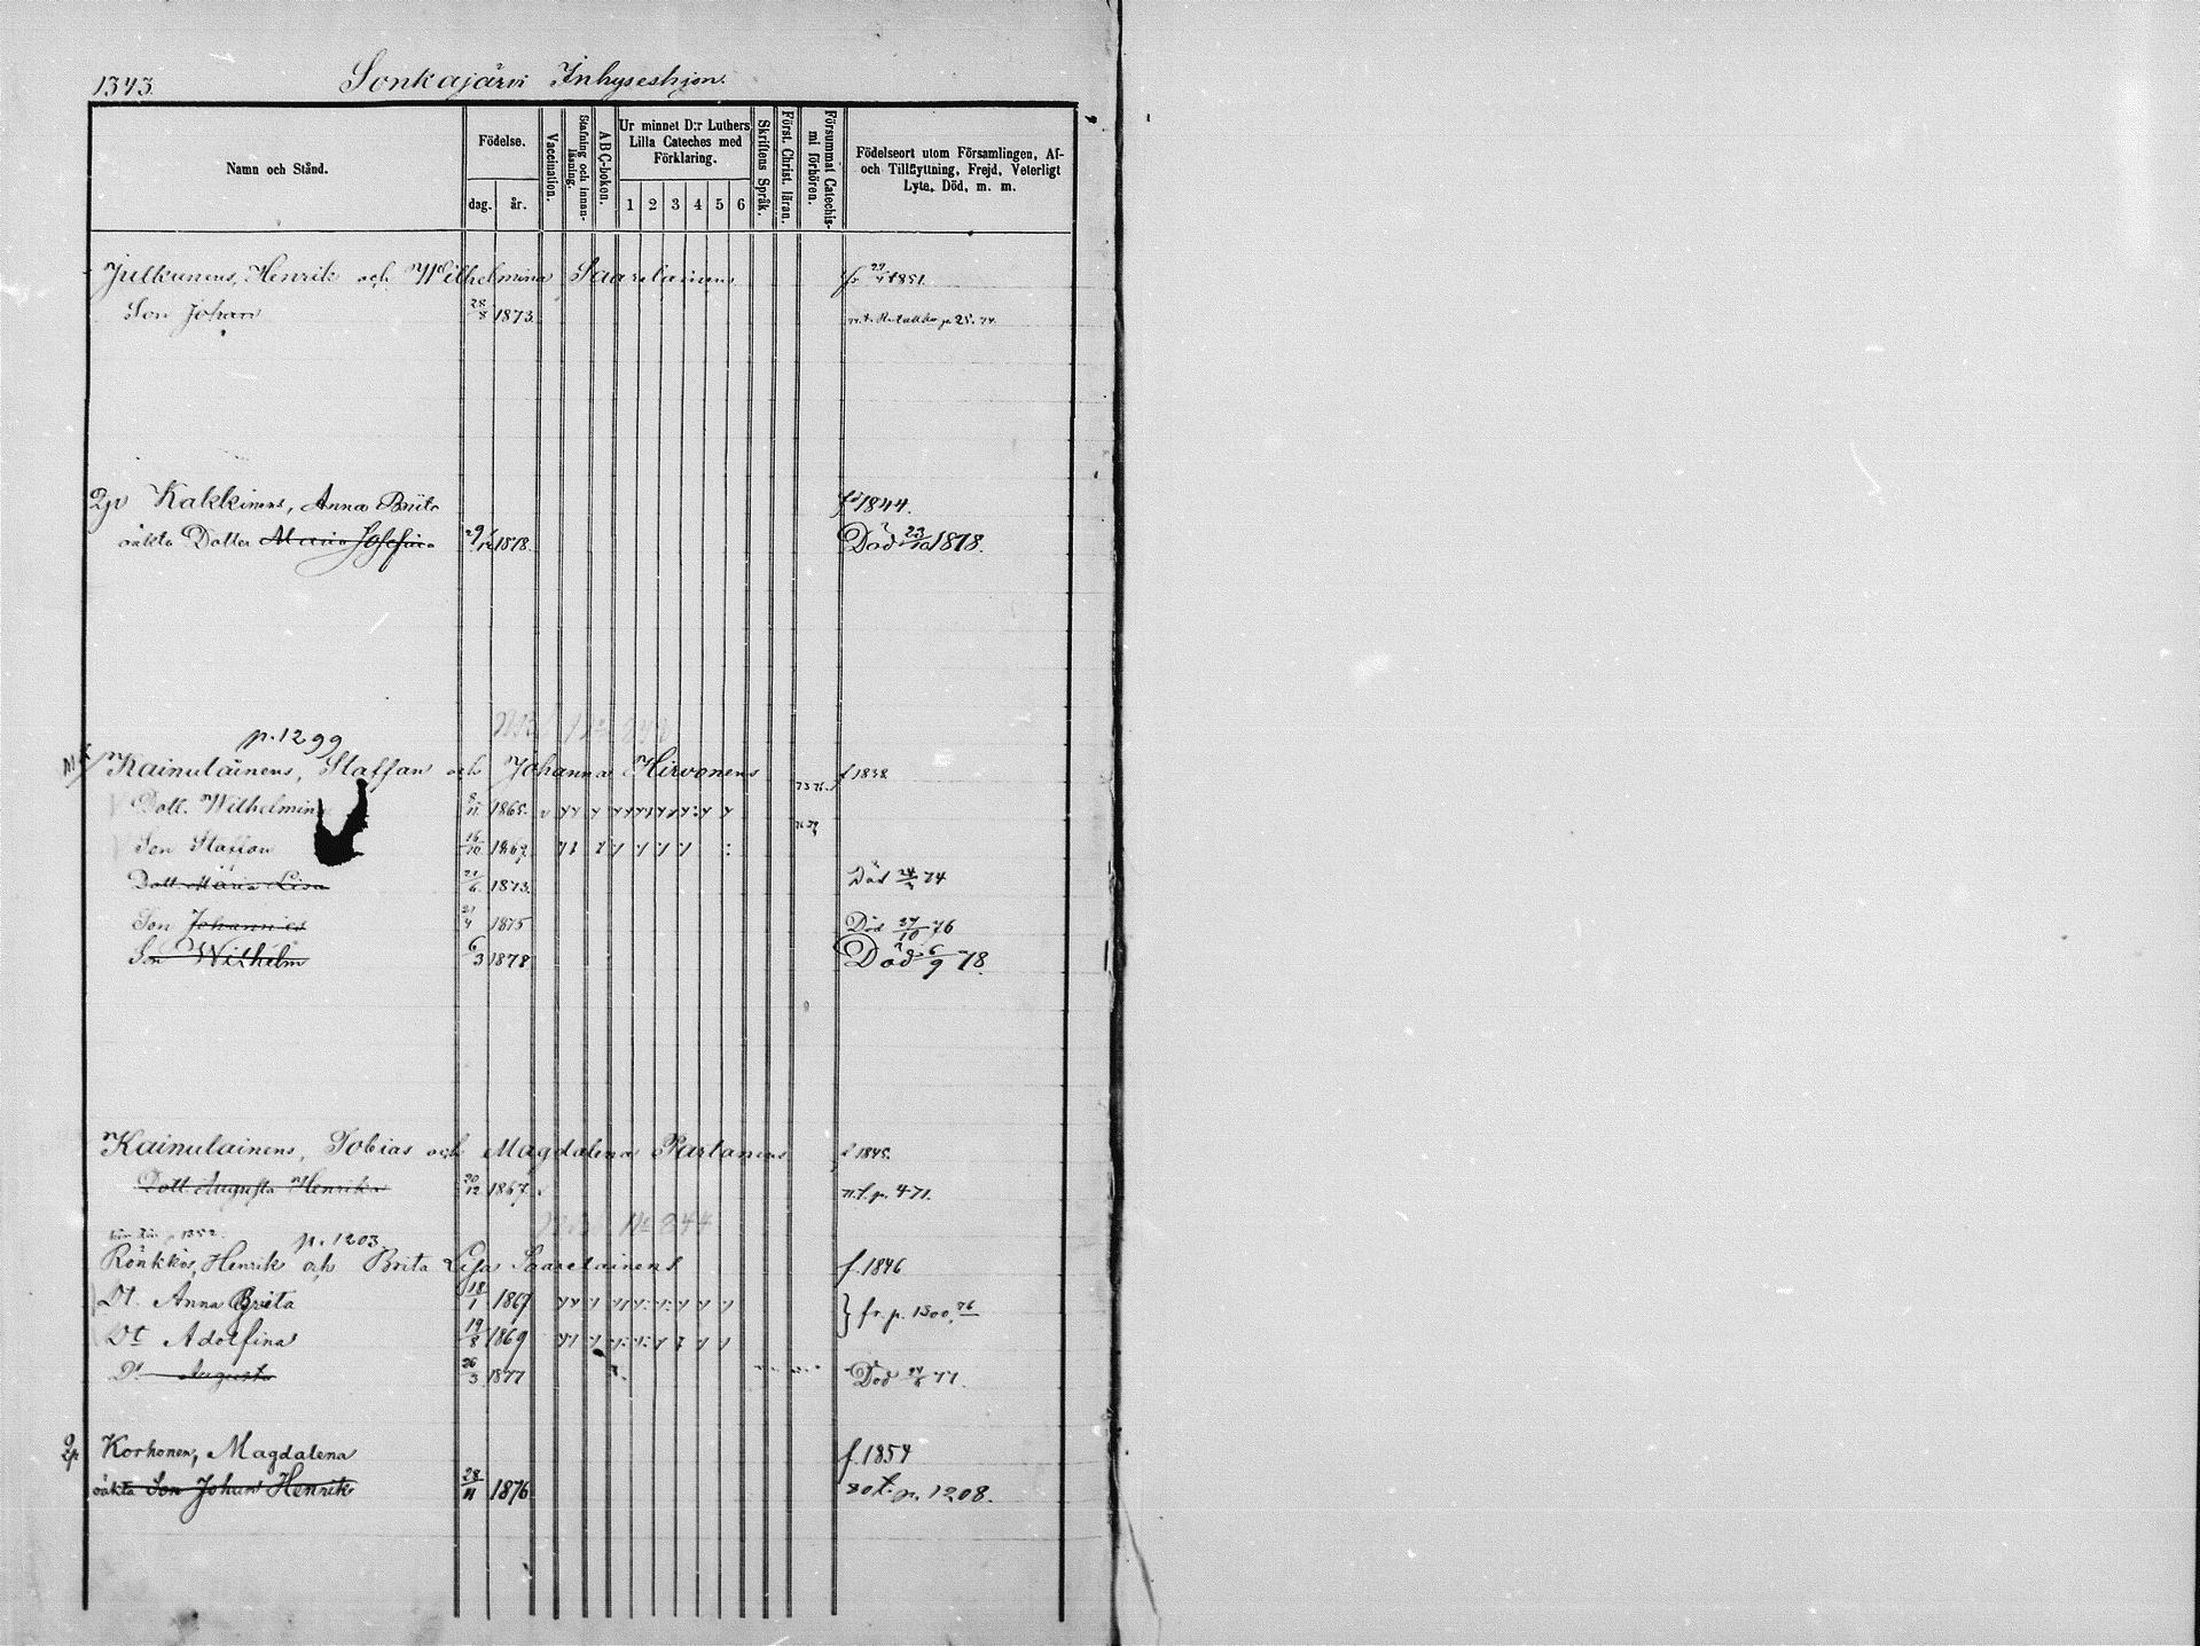 1343. Sonkajärvi Inhyseshjon.
Namn och Stånd.
Födelse.
dag. år.
Vaccination.
Stafning och innanläsning.
ABC-boken.
Ur minnet D:r Luthers Lilla Cateches med Förklaring.
1 2 3 4 5 6
Skriftens Språk.
Först. Christ. läran.
Försummat Catechismi förhören.
Födelseort utom Församlingen, Af- och Tillflyttning, Frejd, Veterligt Lyte, Död, m. m.
Julkunens, Henrik och Wilhelmina Saarelainens 1851.
Son Johan 28/8 1873.
Qp Kakkinens, Anna Brita 1844.
oäkta Dotter Maria Josefina 1878. Död 23/10 1878.
p. 1299
Kainulainens, Staffan och Johanna Hirvonens f 1838
Dott. Wilhelmina 8/11 1865.
Son Staffan 16/10
Dott Maria Lisa 21/6 1873. Död 74
Son Johannes 21/4 1875 Död 27/10 76
Son Wilhelm 6/3 1878 Död 6/9 78.
Kainulainens, Tobias och Magdalena Partanens f 1845.
Dott Augusta Henrika 20/12 1867. t. p. 471.
p. 1203. No 844
Rönkkös, Henrik och Brita Lisa Saarelainens f. 1846
Dt. Anna Brita 18/1 1867 } fr. p. 1300, 76
Dt Adolfina 19/8 1869
Dt Augusta 26/3 1877 Död 77.
Qp Korhonen, Magdalena f. 1854
oäkta Son Johan Henrik 28/11 1876 80 t. p. 1208.